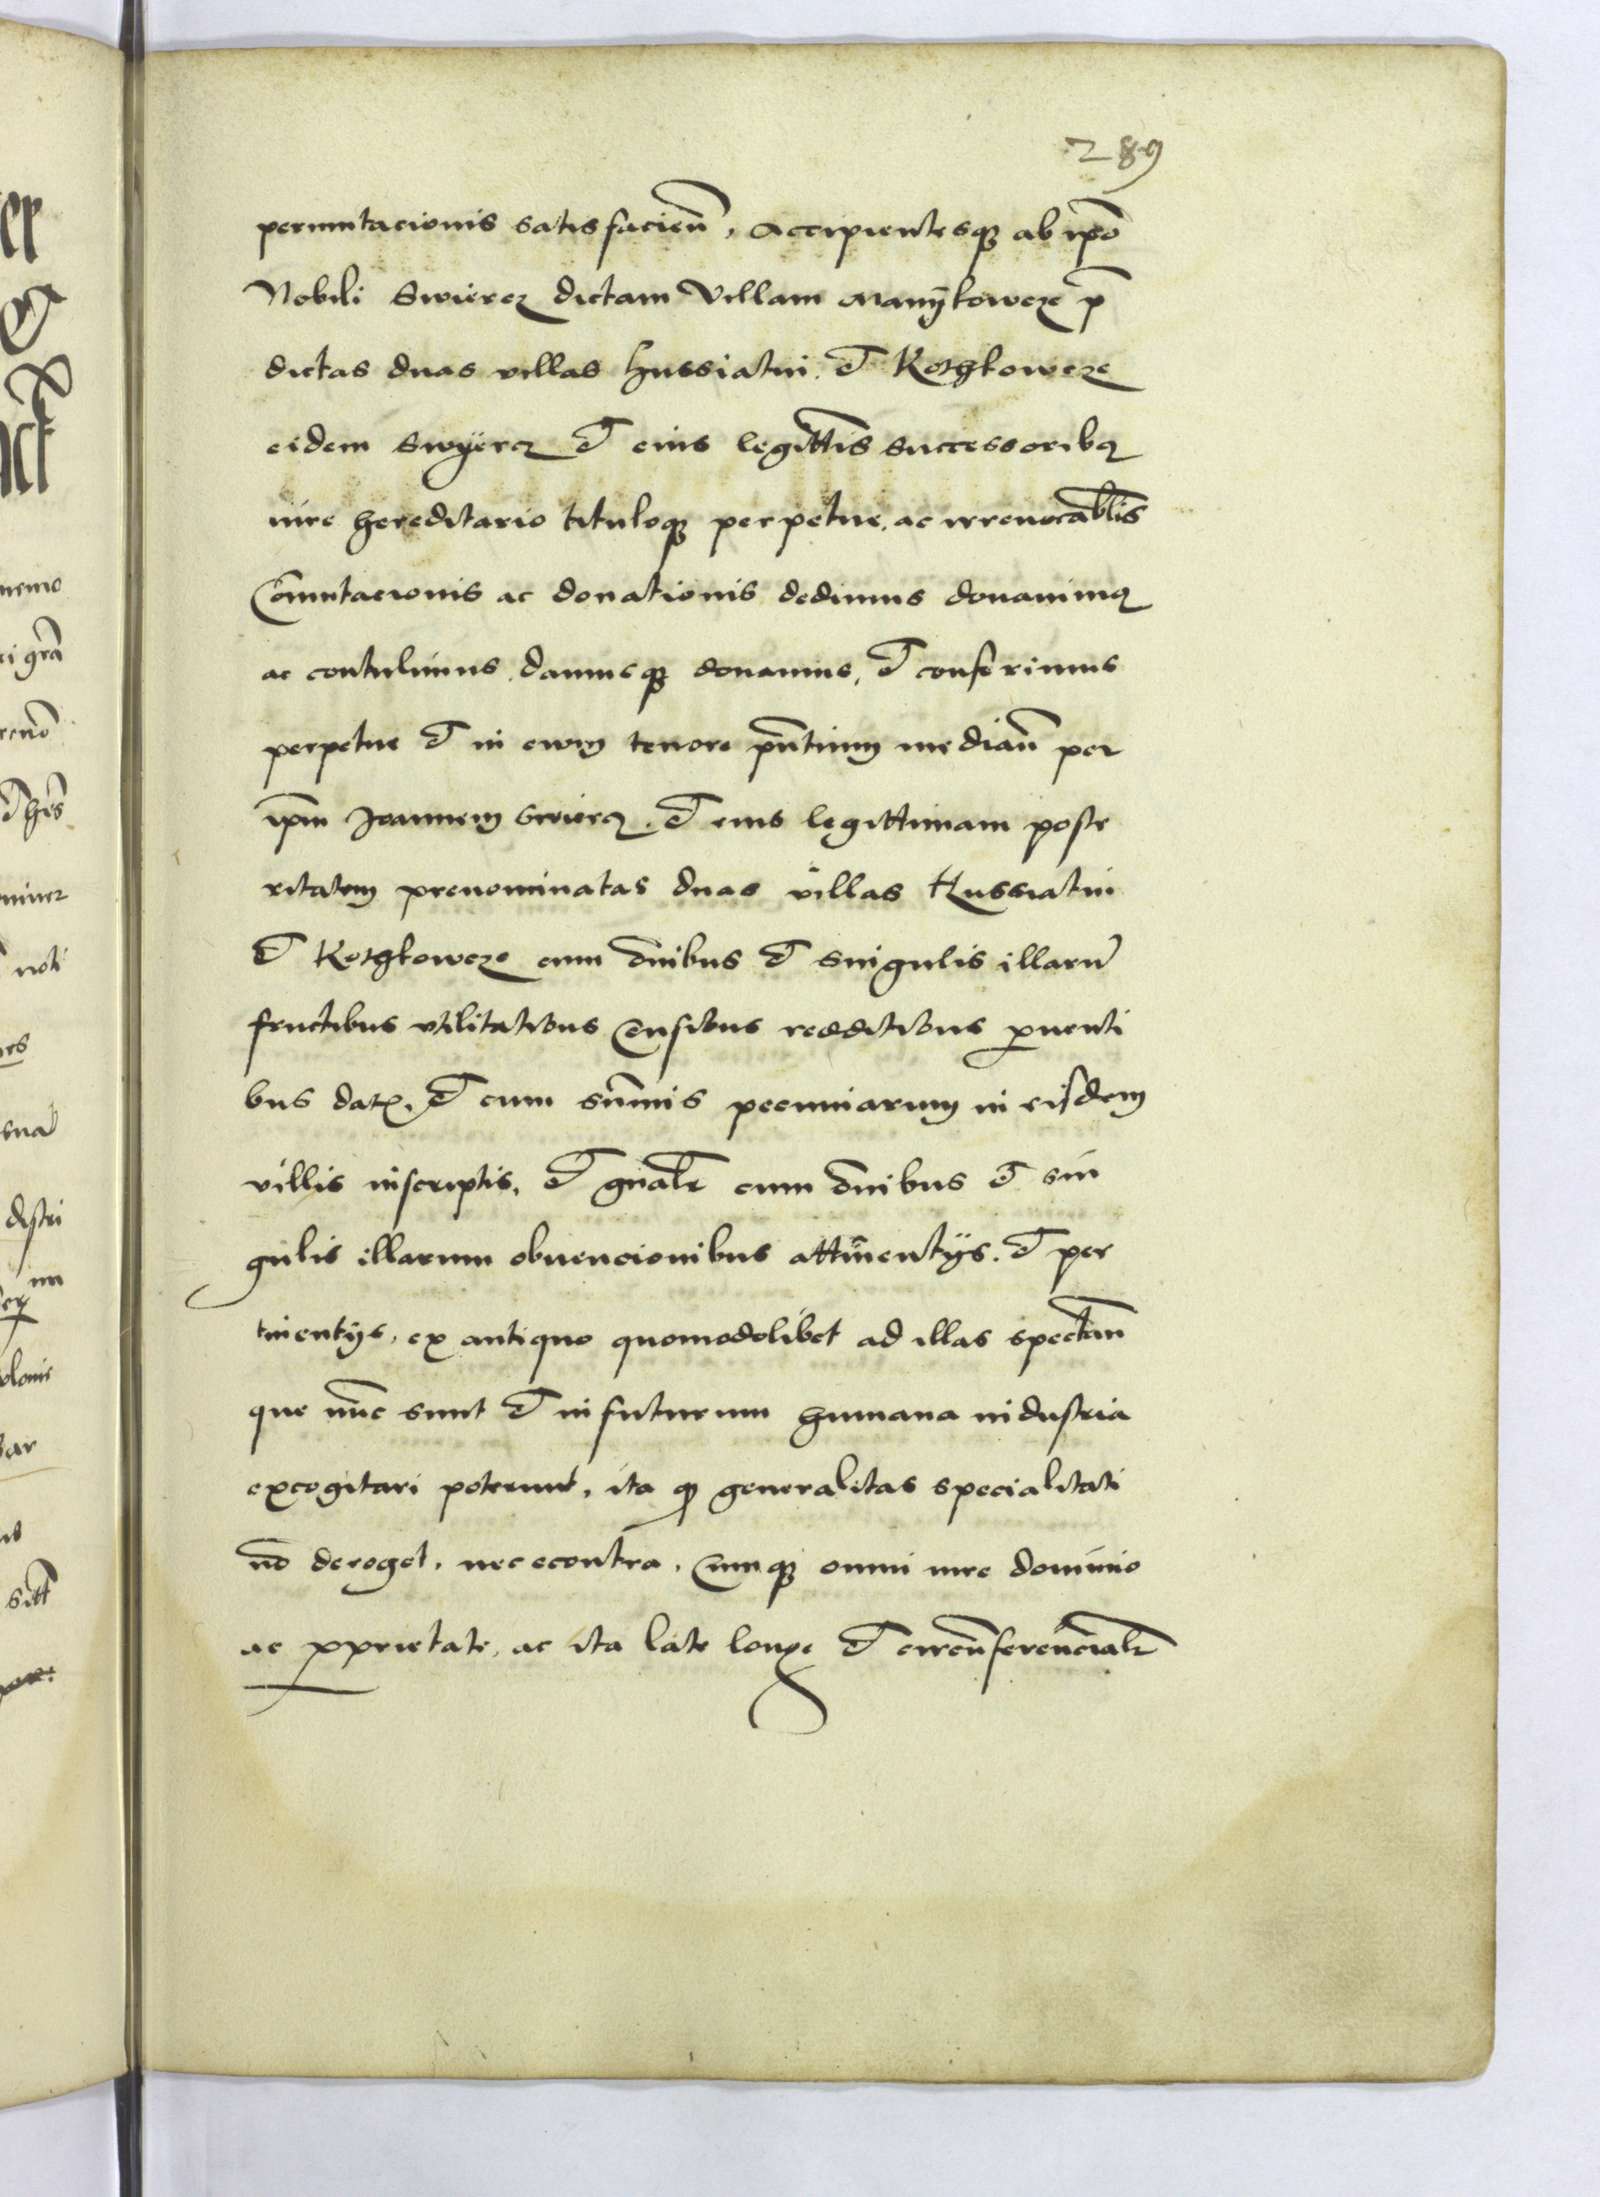 289
permutacionis satisfacien̄, Accipientesq; ab ip̄o
Nobili Swiercz dictam Villam Manykowcze p̄
dictas duas villas Hussiatin et Kothkowcze
eidem Swyercz et eius legitt̄is successoribq
iure hereditario tituloq; perpetue, ac irreuocabl̄is
Cōmutacionis ac donationis dedimus donauimq
ac contulimus, damusq; donamus, et conferimus
perpetue et in ewm tenore pn̄tium median̄ per
ip̄m Joannem Swiercz, et eius legittimam poste
ritatem prenominatas duas villas Hussiatin
et Kothkowcze cum om̄ibus et singulis illarū
fructibus vtilitatibus Censibus redditibus ꝓuenti
bus dacz, et cum sum̄is pecuniarum in eisdem
villis inscriptis, et gn̄alr̄ cum om̄ibus et sin
gulis illarum obuencionibus attinentijs. et per
tinentijs, ex antiquo quomodolibet ad illas spectan̄
que nūc sunt et in futurum humana industria
excogitari poterunt, ita ꝙ generalitas specialitati
nō deroget, nec econtra, Cumq; omni iure dominio
ac ꝓprietate, ac ita late longe et circūferencialr̄